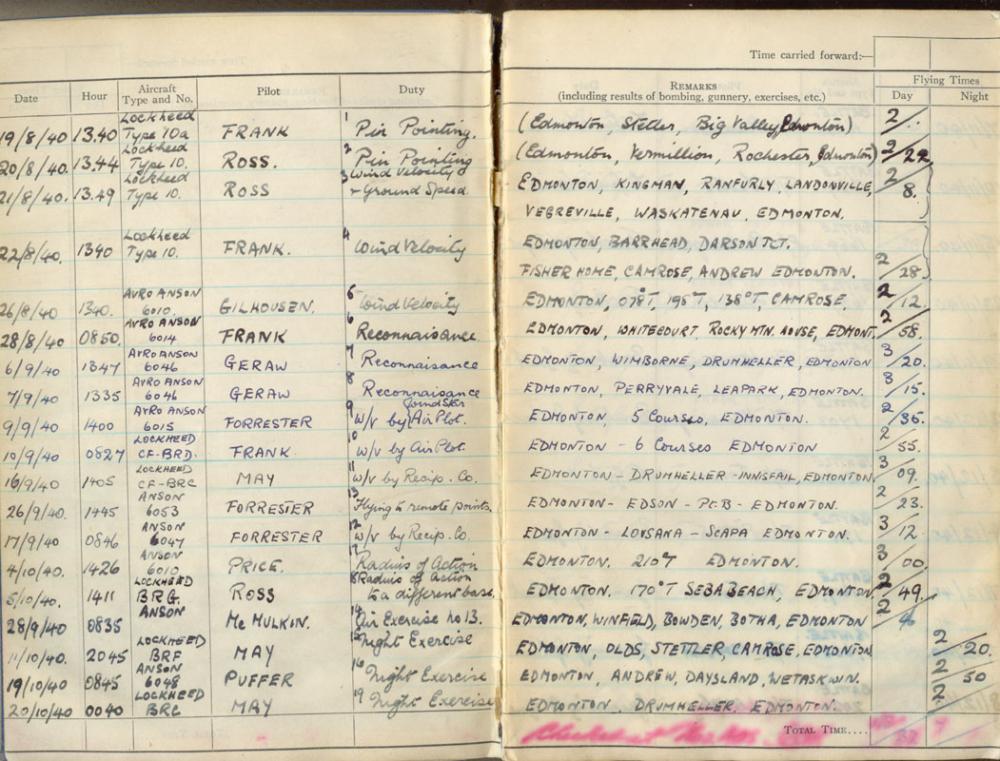 Time carried forward:—
Date Hour Aircraft Type and No. Pilot Duty REMARKS (including results of bombing, gunnery, exercises, etc.) Flying Times Day Night
19/8/40 13.40 Lockheed Type 10a FRANK 1 Pin Pointing. (Edmonton, Stetler, Big Valley, Edmonton) 2/.
20/8/40. 13.44 Lockheed Type 10. ROSS. 2 Pin Pointing (Edmonton, Vermillion, Rochester, Edmonton) 2/22
21/8/40. 13.49 Lockheed Type 10. ROSS 3 Wind Velocity & Ground Speed. EDMONTON, KINGMAN, RANFURLY, LANDONVILLE, 2/8.
VEGREVILLE, WASKATENAU, EDMONTON.
22/8/40. 1340 Lockheed Type 10. FRANK. 4 Wind Velocity EDMONTON, BARRHEAD, DARSON JCT.
FISHER HOME, CAMROSE, ANDREW EDMONTON. 2/28
26/8/40 1340. AVRO ANSON 6010. GILHOUSEN. Wind Velocity EDMONTON, 078°T, 195°T, 138°T, CAMROSE. 2/12.
28/8/40 0850. AVRO ANSON 6014 FRANK 6 Reconnaissance. EDMONTON, WHITECOURT ROCKY MTN. HOUSE, EDMONT. 2/58.
6/9/40 1347 AVRO ANSON 6046 GERAW 7 Reconnaissance EDMONTON, WIMBORNE, DRUMHELLER, EDMONTON 3/20.
7/9/40 1335 AVRO ANSON 6046 GERAW 8 Reconnaisance EDMONTON, PERRYVALE, LEAPARK, EDMONTON. 3/15.
9/9/40 1400 AVRO ANSON 6015 FORRESTER 9 W/V by Air Plot. EDMONTON, 5 Courses, EDMONTON. 2/35.
10/9/40 0827 LOCKHEED CF-BRD. FRANK. 10 W/V by Air Plot. EDMONTON - 6 Courses EDMONTON 2/55.
16/9/40 1405 LOCKHEED CF-BRC MAY 11 W/V by Recip. Co. EDMONTON - DRUMHELLER - INNISFAIL, EDMONTON 3/09.
26/9/40. 1445 ANSON 6053 FORRESTER 13 Flying to remote points. EDMONTON - EDSON - Pt. B - EDMONTON. 2/23.
17/9/40 0846 ANSON 6047 FORRESTER 12 W/V by Recip. Co. EDMONTON - LOUSANA - SCAPA EDMONTON. 3/12
4/10/40. 1426 ANSON 6010 PRICE. Radius of Action EDMONTON. 210°T EDMONTON. 3/00.
5/10/40. 1411 LOCKHEED BRG. ROSS Radius of action to a different base. EDMONTON. 170°T SEBA BEACH, EDMONTON 2/49.
28/9/40 0835 ANSON Mc MULKIN. 14 Air Exercise No 13. EDMONTON, WINFIELD, BOWDEN, BOTHA, EDMONTON 2/
11/10/40. 2045 LOCKHEED BRF MAY 15 Night Exercise EDMONTON, OLDS, STETTLER, CAMROSE, EDMONTON 2/20.
19/10/40 0845 ANSON 6048 PUFFER 16 Night Exercise EDMONTON, ANDREW, DAYSLAND, WETASKWIN. 2/50
20/10/40 0040 LOCKHEED BRC MAY 19 Night Exercise EDMONTON. DRUMHELLER. EDMONTON. 2
TOTAL TIME.... 9